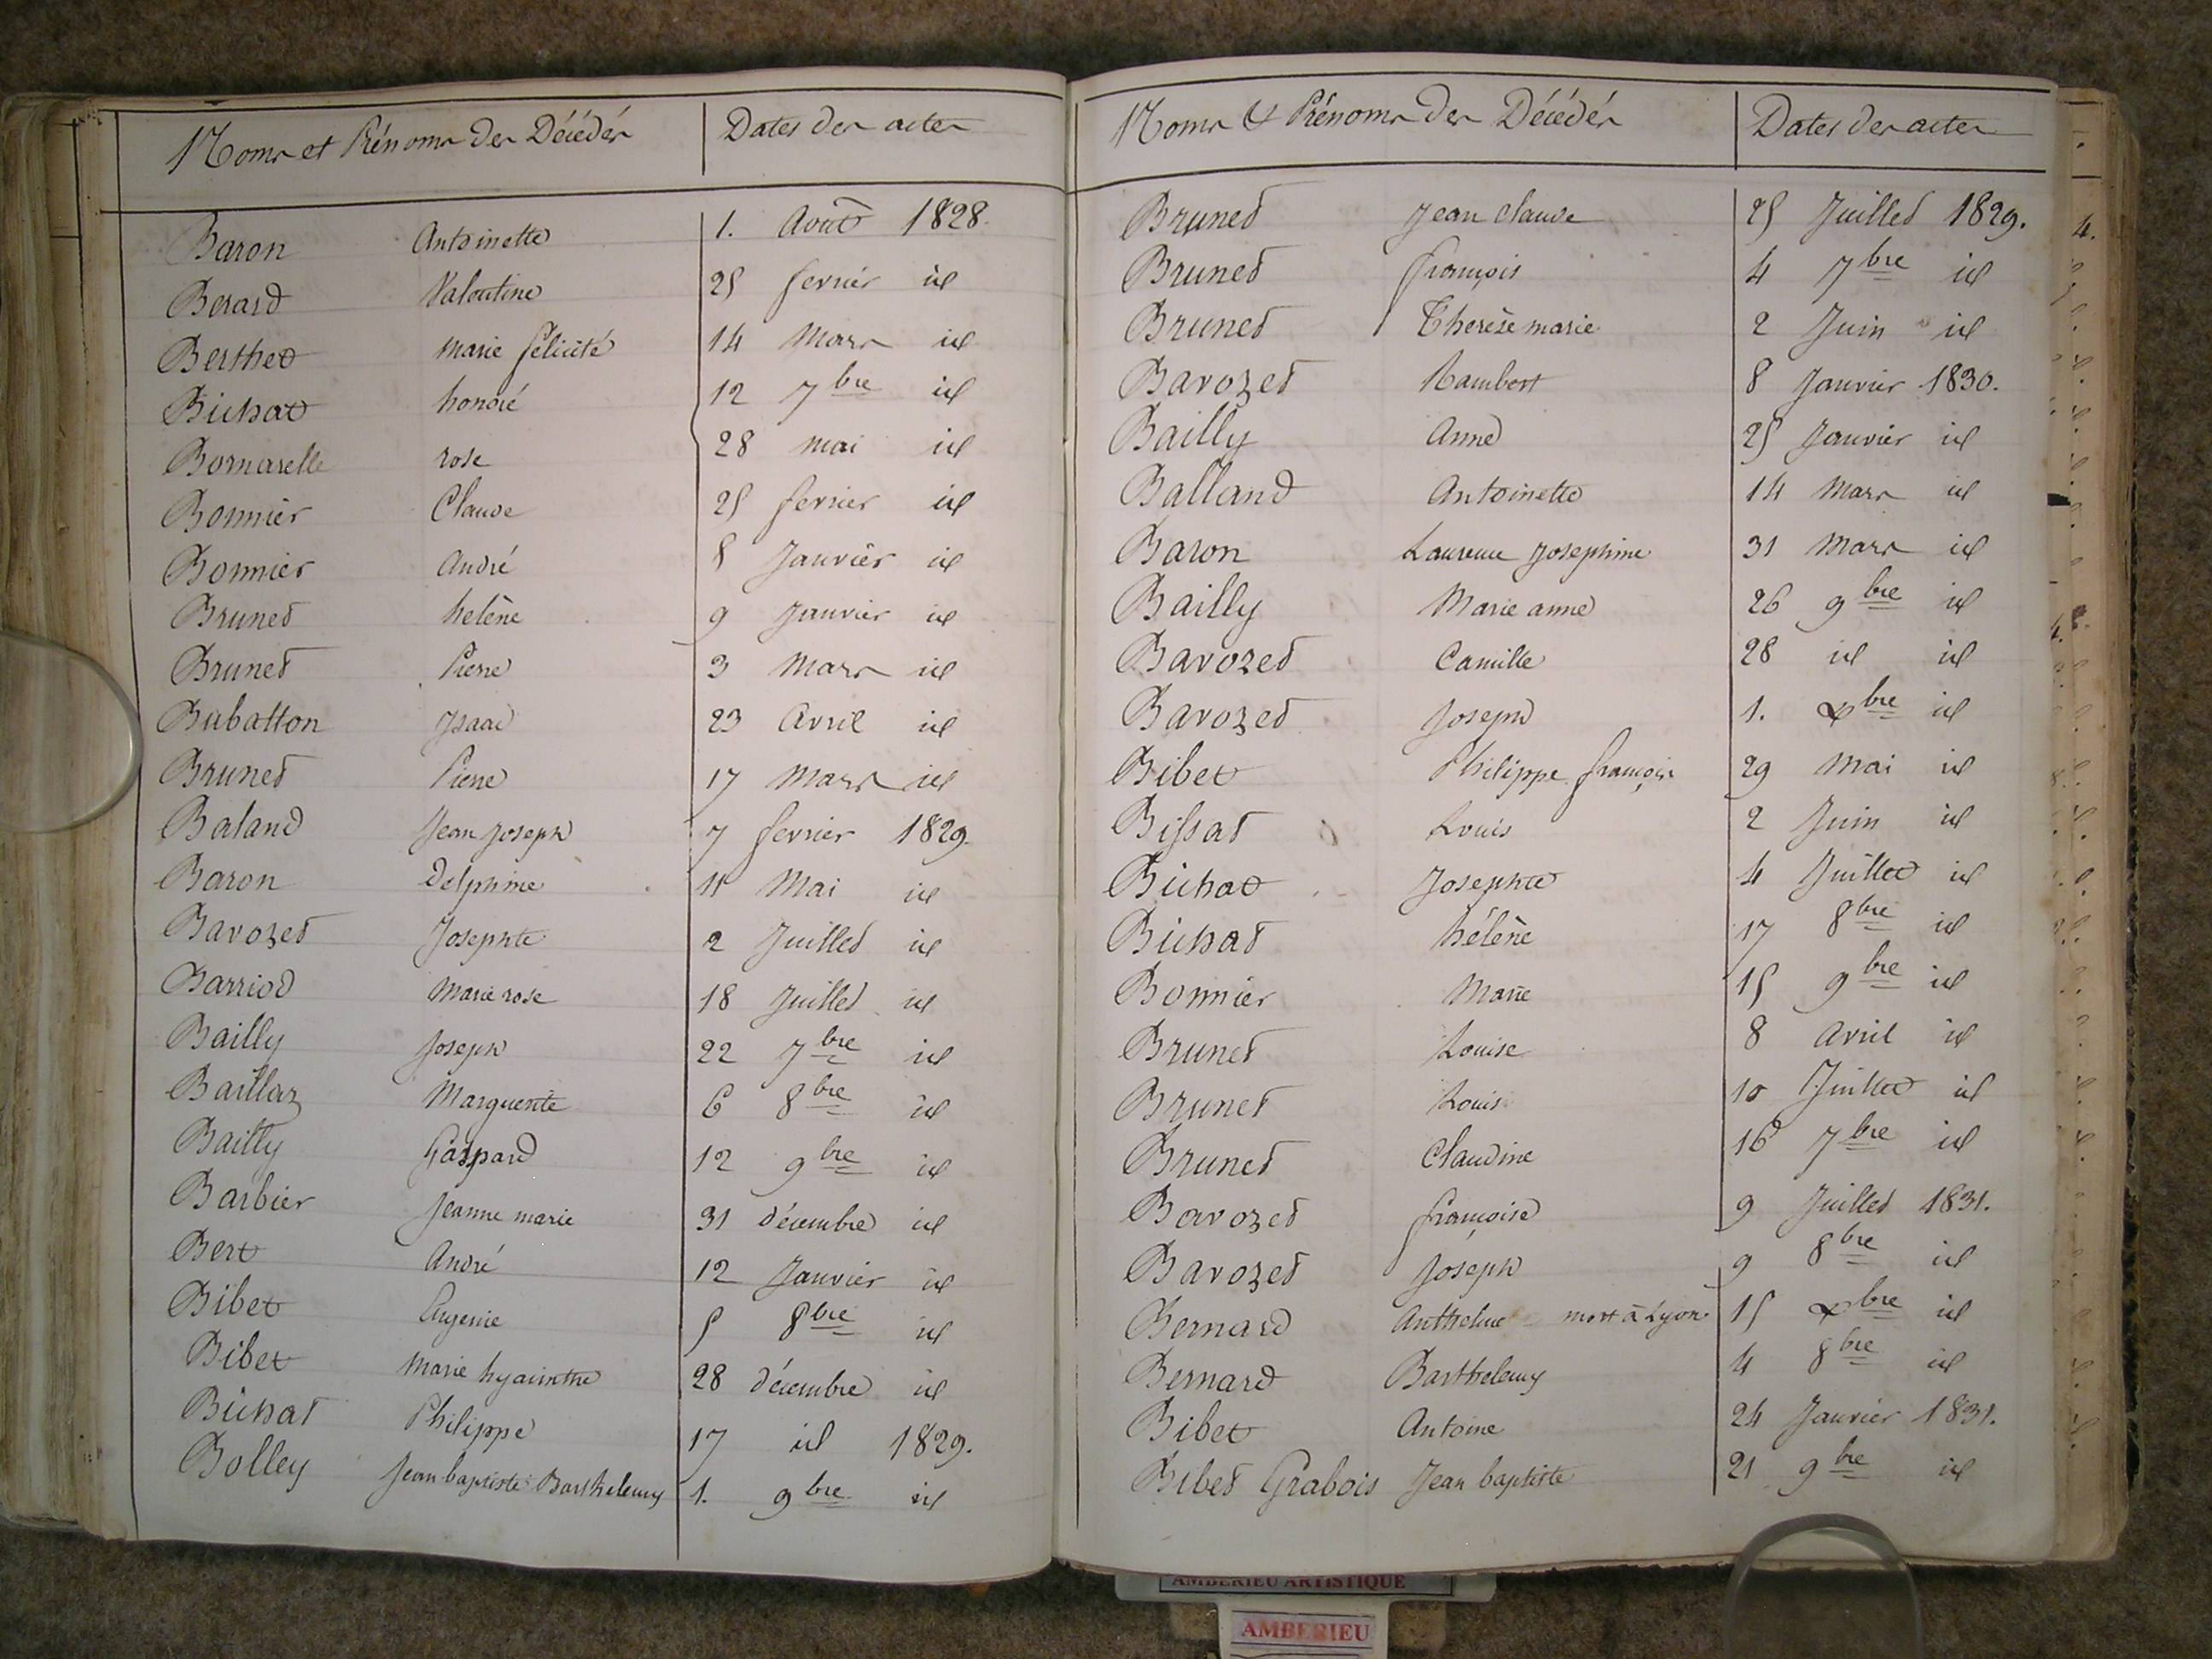 Noms et Prénoms des Décédés Dates des actes
Baron Antoinette 1. Août 1828.
Berard Valentine 25 fevrier id
Berthet Marie félicité 14 Mars id
Bichat honoré 12 7bre id
Bornarelle rose 28 mai id
Bonnier Claude 25 fevrier id
Bonnier André 8 Janvier id
Brunet helène 9 Janvier id
Brunet Pierre 3 Mars id
Babatton Isaac 23 Avril id
Brunet Pierre 17 Mars id
Baland Jean Joseph 7 fevrier 1829.
Baron Delphine 11 Mai id
Bavozet Josephte 2 Juillet id
Barriod Marie rose 18 Juillet id
Bailly Joseph 22 7bre id
Baillaz Marguerite 6 8bre id
Bailly Gaspard 12 9bre id
Barbier Jeanne marie 31 décembre id
Bert André 12 Janvier id
Bibet Eugenie 5 8bre id
Bibet Marie hyacinthe 28 décembre id
Bichat Philippe 17 id 1829.
Bolley Jean baptiste Barthelemy 1. 9bre id
Noms & Prénoms des Décédés Dates des actes
Brunet Jean Claude 25 Juillet 1829.
Brunet françois 4 7bre id
Brunet Therèse marie 2 Juin id
Bavozet Rambert 8 Janvier 1830.
Bailly Anne 25 Janvier id
Balland Antoinette 14 Mars id
Baron Laurence Josephine 31 Mars id
Bailly Marie anne 26 9bre id
Bavozet Camille 28 id id
Bavozet Joseph 1. Xbre id
Bibet Philippe françois 29 Mai id
Bissat Louis 2 Juin id
Bichat Josephte 4 Juillet id
Bichat hélène 17 8bre id
Bonnier Marie 15 9bre id
Brunet Louise 8 Avril id
Brunet Louis 10 Juillet id
Brunet Claudine 16 7bre id
Bavozet françoise 9 Juillet 1831.
Bavozet Joseph 9 8bre id
Bernard Anthelme mort à Lyon 15 Xbre id
Bernard Barthelemy 4 8bre id
Bibet Antoine 24 Janvier 1831.
Bibet Grabois Jean baptiste 21 9bre id
AMBERIEU ARTISTIQUE
AMBERIEU